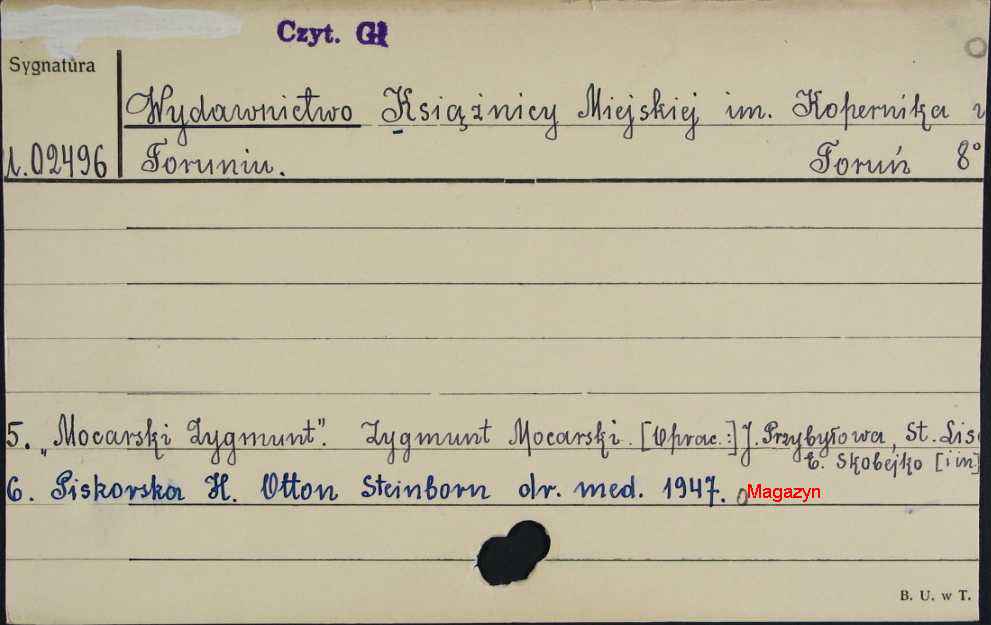 Czyt. Gł
Sygnatura
Wydawnictwo Książnicy Miejskiej im. Kopernika w
02496 Toruniu. Toruń 8°
5. „Mocarski Zygmunt". Zygmunt Mocarski. [Oprac.:] J. Przybyłowa, St. Lis
E. Skobejko [i in]
6. Piskorska H. Otton Steinborn dr. med. 1947. Magazyn
B. U. w T.